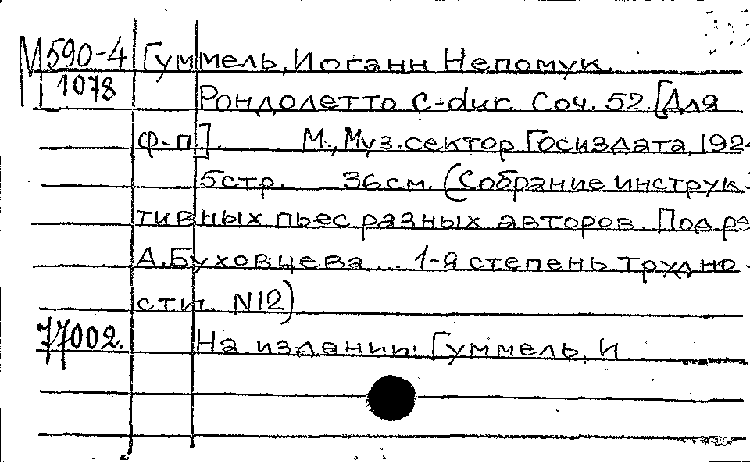 М590-4 Гуммель, Иоганн Непомук.
1078 Рондолетто C-dur. Соч. 52. [Для
ф-п]. М., Муз. сектор Госиздата, 192
5 стр. 36 см. (Собрание инструк-
тивных пьес разных авторов. Под р
А. Буховцева... 1-я степень трудно-
сти. N12)
77002. На издании: Гуммель, И